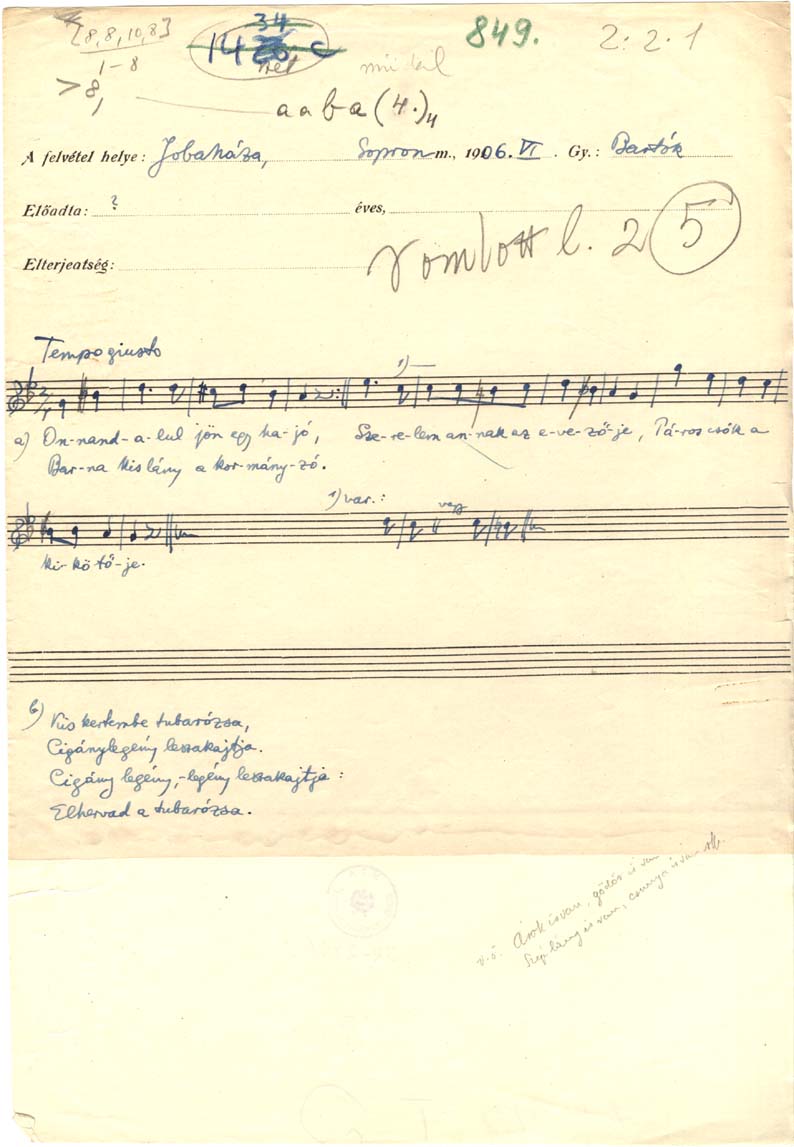 [8,8,10,8]
34
849.
2. 2. 1
1-8
14 c
> 8,
a a b a (4.)4
A felvétel helye: Jobaháza, Sopron m., 1906. VI. Gy.: Bartók
Előadta: ? éves,
romlott l. 2 5
Elterjedtség:
Tempo giusto
1)
a) On-nand-a-lul jön egy ha-jó, Sze-re-lem an-nak az e-ve-ző-je, Pá-ros csók a
Bar-na kis lány a kor-mány-zó.
1) var.:
vagy
ki-kö tő-je.
b) Kis kertembe tubarózsa,
Cigánylegény leszakajtja.
Cigány legény,-legény leszakajtja:
Elhervad a tubarózsa.
v.ö. Árok is van, gödör is van
Szép lány is van, csunya is van stb.